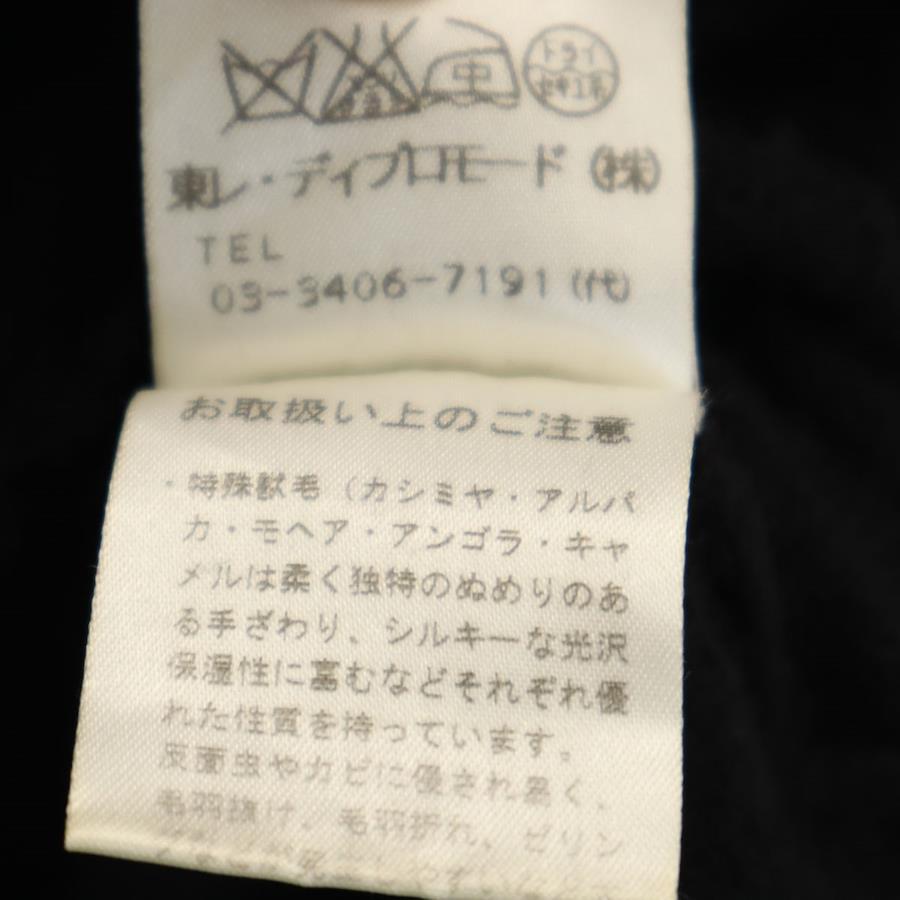 中
ドライ
セキユ系
東レ・ディプロモード（株）
TEL
03-3406-7191（代）
お取扱い上のご注意
・特殊獣毛（カシミヤ・アルパ
カ・モヘア・アンゴラ・キャ
メルは柔く独特のぬめりのあ
る手ざわり、シルキーな光沢
保湿性に富むなどそれぞれ優
れた性質を持っています。
反面虫やカビに侵され易く、
毛羽抜け、毛羽折れ、ピリン